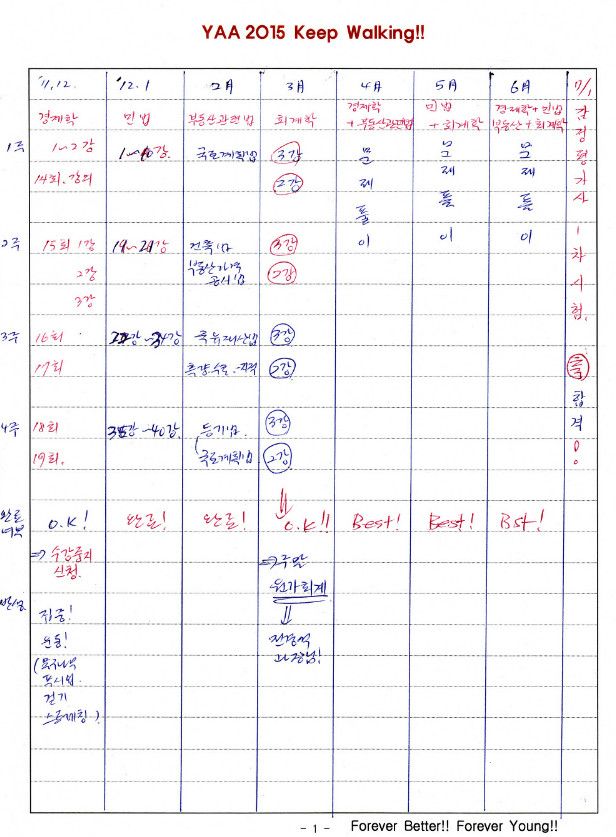 YAA 2015 Keep Walking!!
11,12. 12.1 2月 3月 4月 5月 6月 7/1
경제학 민법 부동산관련법 회계학 경제학 민법 경제학+민법
+부동산관련법 +회계학 부동산+회계학
감정평가사 1차 시험. 합격!!
1주 1~2강 1~10강. 국토계획법 3강 문 문 문
14회. 강의 2강 제 제 제
풀 풀 풀
2주 15회 1강 건축법 3강 이 이 이
2강 2강
3강
3주 16회 3강
17회 2강
4주 18회 ~40강. 등기법. 3강
19회. 국토계획법 2강
완료
여부 O.K! 완료! 완료! O.K!! Best! Best! Bst!
⇒ 수강중지 ⇒ 주말
신청. 원가회계
반성
집중!
운동!
걷기
스트레칭.)
- 1 - Forever Better!! Forever Young!!